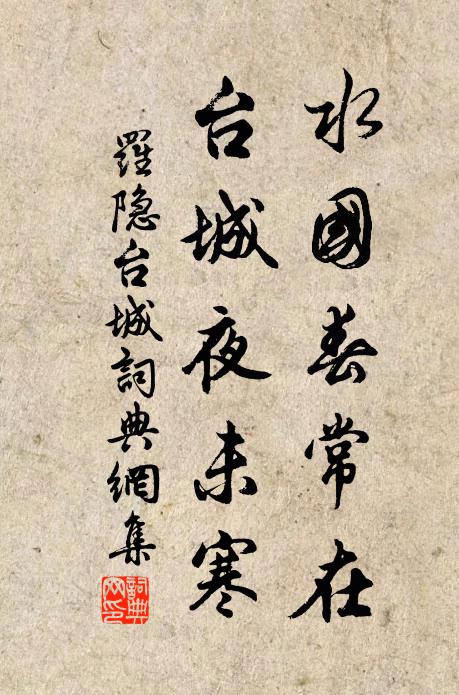 水國春常在
台城夜未寒
羅隐台城詞典網集
詞典
网印